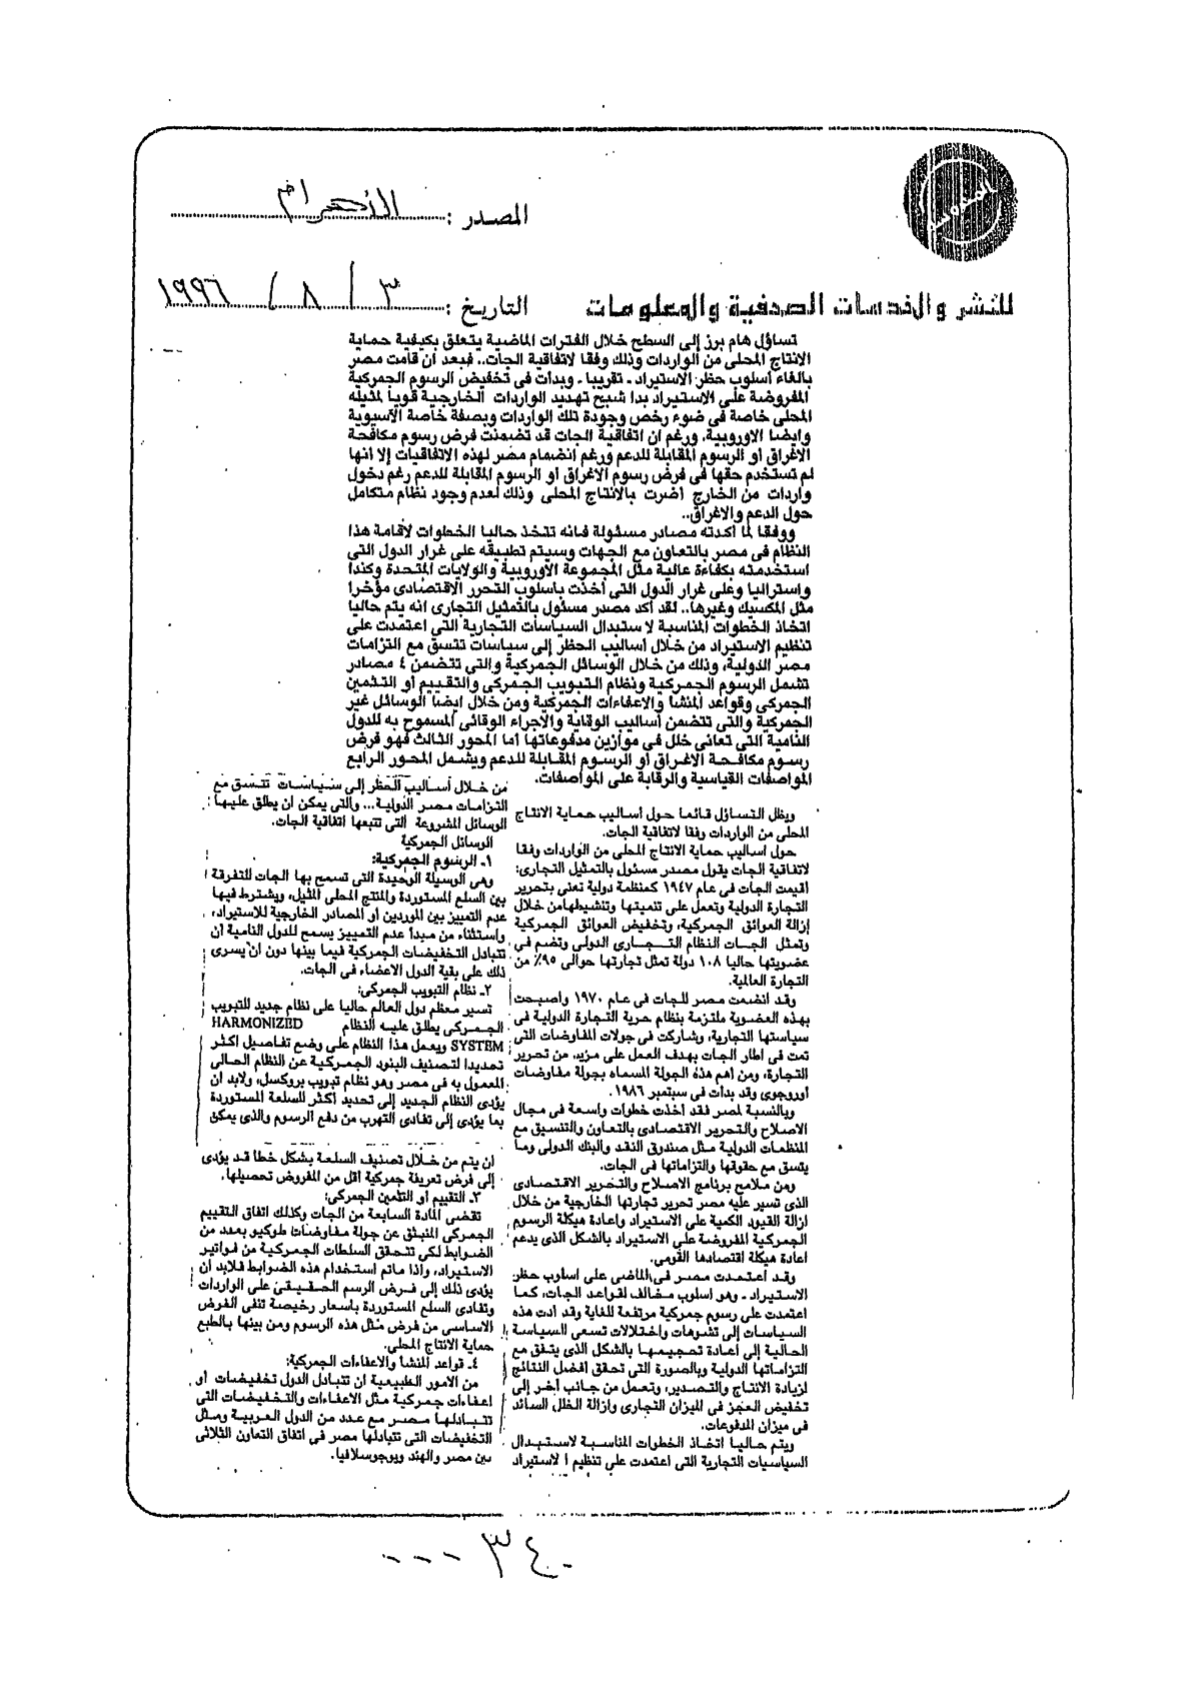 المصدر : الأهرام
للنشر والخدمات الصحفية والمعلومات
التاريخ : ٣ / ٨ / ١٩٩٦
تساؤل هام برز إلى السطح خلال الفترات الماضية يتعلق بكيفية حماية
الانتاج المحلى من الواردات وذلك وفقا لاتفاقية الجات.. فبعد أن قامت مصر
بالغاء أسلوب حظر الاستيراد ـ تقريبا ـ وبدأت فى تخفيض الرسوم الجمركية
المفروضة على الاستيراد بدا شبح تهديد الواردات الخارجية قويا لمثيله
المحلى خاصة فى ضوء رخص وجودة تلك الواردات وبصفة خاصة الآسيوية
وايضا الاوروبية، ورغم ان اتفاقية الجات قد تضمنت فرض رسوم مكافحة
الاغراق أو الرسوم المقابلة للدعم ورغم انضمام مصر لهذه الاتفاقيات إلا أنها
لم تستخدم حقها فى فرض رسوم الاغراق أو الرسوم المقابلة للدعم رغم دخول
واردات من الخارج أضرت بالانتاج المحلى وذلك لعدم وجود نظام متكامل
حول الدعم والاغراق..
ووفقا لما أكدته مصادر مسئولة فانه تتخذ حاليا الخطوات لاقامة هذا
النظام فى مصر بالتعاون مع الجهات وسيتم تطبيقه على غرار الدول التى
استخدمته بكفاءة عالية مثل المجموعة الأوروبية والولايات المتحدة وكندا
واستراليا وعلى غرار الدول التى أخذت بأسلوب التحرر الاقتصادى مؤخرا
مثل المكسيك وغيرها.. لقد أكد مصدر مسئول بالتمثيل التجارى انه يتم حاليا
اتخاذ الخطوات المناسبة لاستبدال السياسات التجارية التى اعتمدت على
تنظيم الاستيراد من خلال أساليب الحظر إلى سياسات تتسق مع التزامات
مصر الدولية، وذلك من خلال الوسائل الجمركية والتى تتضمن ٤ مصادر
تشمل الرسوم الجمركية ونظام التبويب الجمركى والتقييم أو التثمين
الجمركى وقواعد المنشا والاعفاءات الجمركية ومن خلال ايضا الوسائل غير
الجمركية والتى تتضمن أساليب الوقاية والاجراء الوقائى المسموح به للدول
النامية التى تعانى خلل فى موازين مدفوعاتها أما المحور الثالث فهو فرض
رسوم مكافحة الاغراق أو الرسوم المقابلة للدعم ويشمل المحور الرابع
المواصفات القياسية والرقابة على المواصفات.
ويظل التساؤل قائما حول أساليب حماية الانتاج
المحلى من الواردات وفقا لاتفاقية الجات.
حول أساليب حماية الانتاج المحلى من الواردات وفقا
لاتفاقية الجات يقول مصدر مسئول بالتمثيل التجارى:
أقيمت الجات فى عام ١٩٤٧ كمنظمة دولية تعنى بتحرير
التجارة الدولية وتعمل على تنميتها وتنشيطها من خلال
إزالة العوائق الجمركية، وتخفيض العوائق الجمركية
وتمثل الجات النظام التجارى الدولى وتضم فى
عضويتها حاليا ١٠٨ دولة تمثل تجارتها حوالى ٩٥٪ من
التجارة العالمية.
وقد انضمت مصر للجات فى عام ١٩٧٠ وأصبحت
بهذه العضوية ملتزمة بنظام حرية التجارة الدولية فى
سياستها التجارية، وشاركت فى جولات المفاوضات التى
تمت فى اطار الجات بهدف العمل على مزيد من تحرير
التجارة، ومن أهم هذه الجولة المسماه بجولة مفاوضات
أوروجوى وقد بدأت فى سبتمبر ١٩٨٦.
وبالنسبة لمصر فقد أخذت خطوات واسعة فى مجال
الاصلاح والتحرير الاقتصادى بالتعاون والتنسيق مع
المنظمات الدولية مثل صندوق النقد والبنك الدولى وما
يتسق مع حقوقها والتزاماتها فى الجات.
ومن ملامح برنامج الاصلاح والتحرير الاقتصادى
الذى تسير عليه مصر تحرير تجارتها الخارجية من خلال
ازالة القيود الكمية على الاستيراد واعادة هيكلة الرسوم
الجمركية المفروضة على الاستيراد بالشكل الذى يدعم
اعادة هيكلة اقتصادها القومى.
وقد اعتمدت مصر فى الماضى على أسلوب حظر
الاستيراد ـ وهو أسلوب مخالف لقواعد الجات، كما
اعتمدت على رسوم جمركية مرتفعة للغاية وقد أدت هذه
السياسات إلى تشوهات واختلالات تسعى السياسة
الحالية إلى اعادة تحجيمها بالشكل الذى يتفق مع
التزاماتها الدولية وبالصورة التى تحقق أفضل النتائج
لزيادة الانتاج والتصدير، وتعمل من جانب آخر إلى
تخفيض العجز فى الميزان التجارى وازالة الخلل السائد
فى ميزان المدفوعات.
ويتم حاليا اتخاذ الخطوات المناسبة لاستبدال
السياسيات التجارية التى اعتمدت على تنظيم الاستيراد
من خلال أساليب الحظر إلى سياسات تتسق مع
التزامات مصر الدولية... والتى يمكن ان يطلق عليها
الوسائل المشروعة التى تتبعها اتفاقية الجات.
الوسائل الجمركية
١ـ الرسوم الجمركية:
وهى الوسيلة الوحيدة التى تسمح بها الجات للتفرقة
بين السلع المستوردة والمنتج المحلى المثيل، ويشترط فيها
عدم التمييز بين الموردين أو المصادر الخارجية للاستيراد،
واستثناء من مبدأ عدم التمييز يسمح للدول النامية أن
تتبادل التخفيضات الجمركية فيما بينها دون أن يسرى
ذلك على بقية الدول الاعضاء فى الجات.
٢ـ نظام التبويب الجمركى:
تسير معظم دول العالم حاليا على نظام جديد للتبويب
الجمركى يطلق عليه النظام HARMONIZED
SYSTEM ويعمل هذا النظام على وضع تفاصيل أكثر
تحديدا لتصنيف البنود الجمركية عن النظام الحالى
المعمول به فى مصر وهو نظام تبويب بروكسل، ولابد أن
يؤدى النظام الجديد إلى تحديد أكثر للسلعة المستوردة
بما يؤدى إلى تفادى التهرب من دفع الرسوم والذى يمكن
ان يتم من خلال تصنيف السلعة بشكل خطأ قد يؤدى
إلى فرض تعريفة جمركية أقل من المفروض تحصيلها.
٣ـ التقييم أو التثمين الجمركى:
تقضى المادة السابعة من الجات وكذلك اتفاق التقييم
الجمركى المنبثق عن جولة مفاوضات طوكيو بعدد من
الضوابط لكى تتحقق السلطات الجمركية من فواتير
الاستيراد، واذا ماتم استخدام هذه الضوابط فلابد أن
يؤدى ذلك إلى فرض الرسم الحقيقى على الواردات
وتفادى السلع المستوردة بأسعار رخيصة تنفى الغرض
الأساسى من فرض مثل هذه الرسوم ومن بينها بالطبع
حماية الانتاج المحلى.
٤ـ قواعد المنشا والاعفاءات الجمركية:
من الأمور الطبيعية ان تتبادل الدول تخفيضات أو
اعفاءات جمركية مثل الاعفاءات والتخفيضات التى
تتبادلها مصر مع عدد من الدول العربية ومثل
التخفيضات التى تتبادلها مصر فى اتفاق التعاون الثلاثى
بين مصر والهند ويوجوسلافيا.
٣٤٠